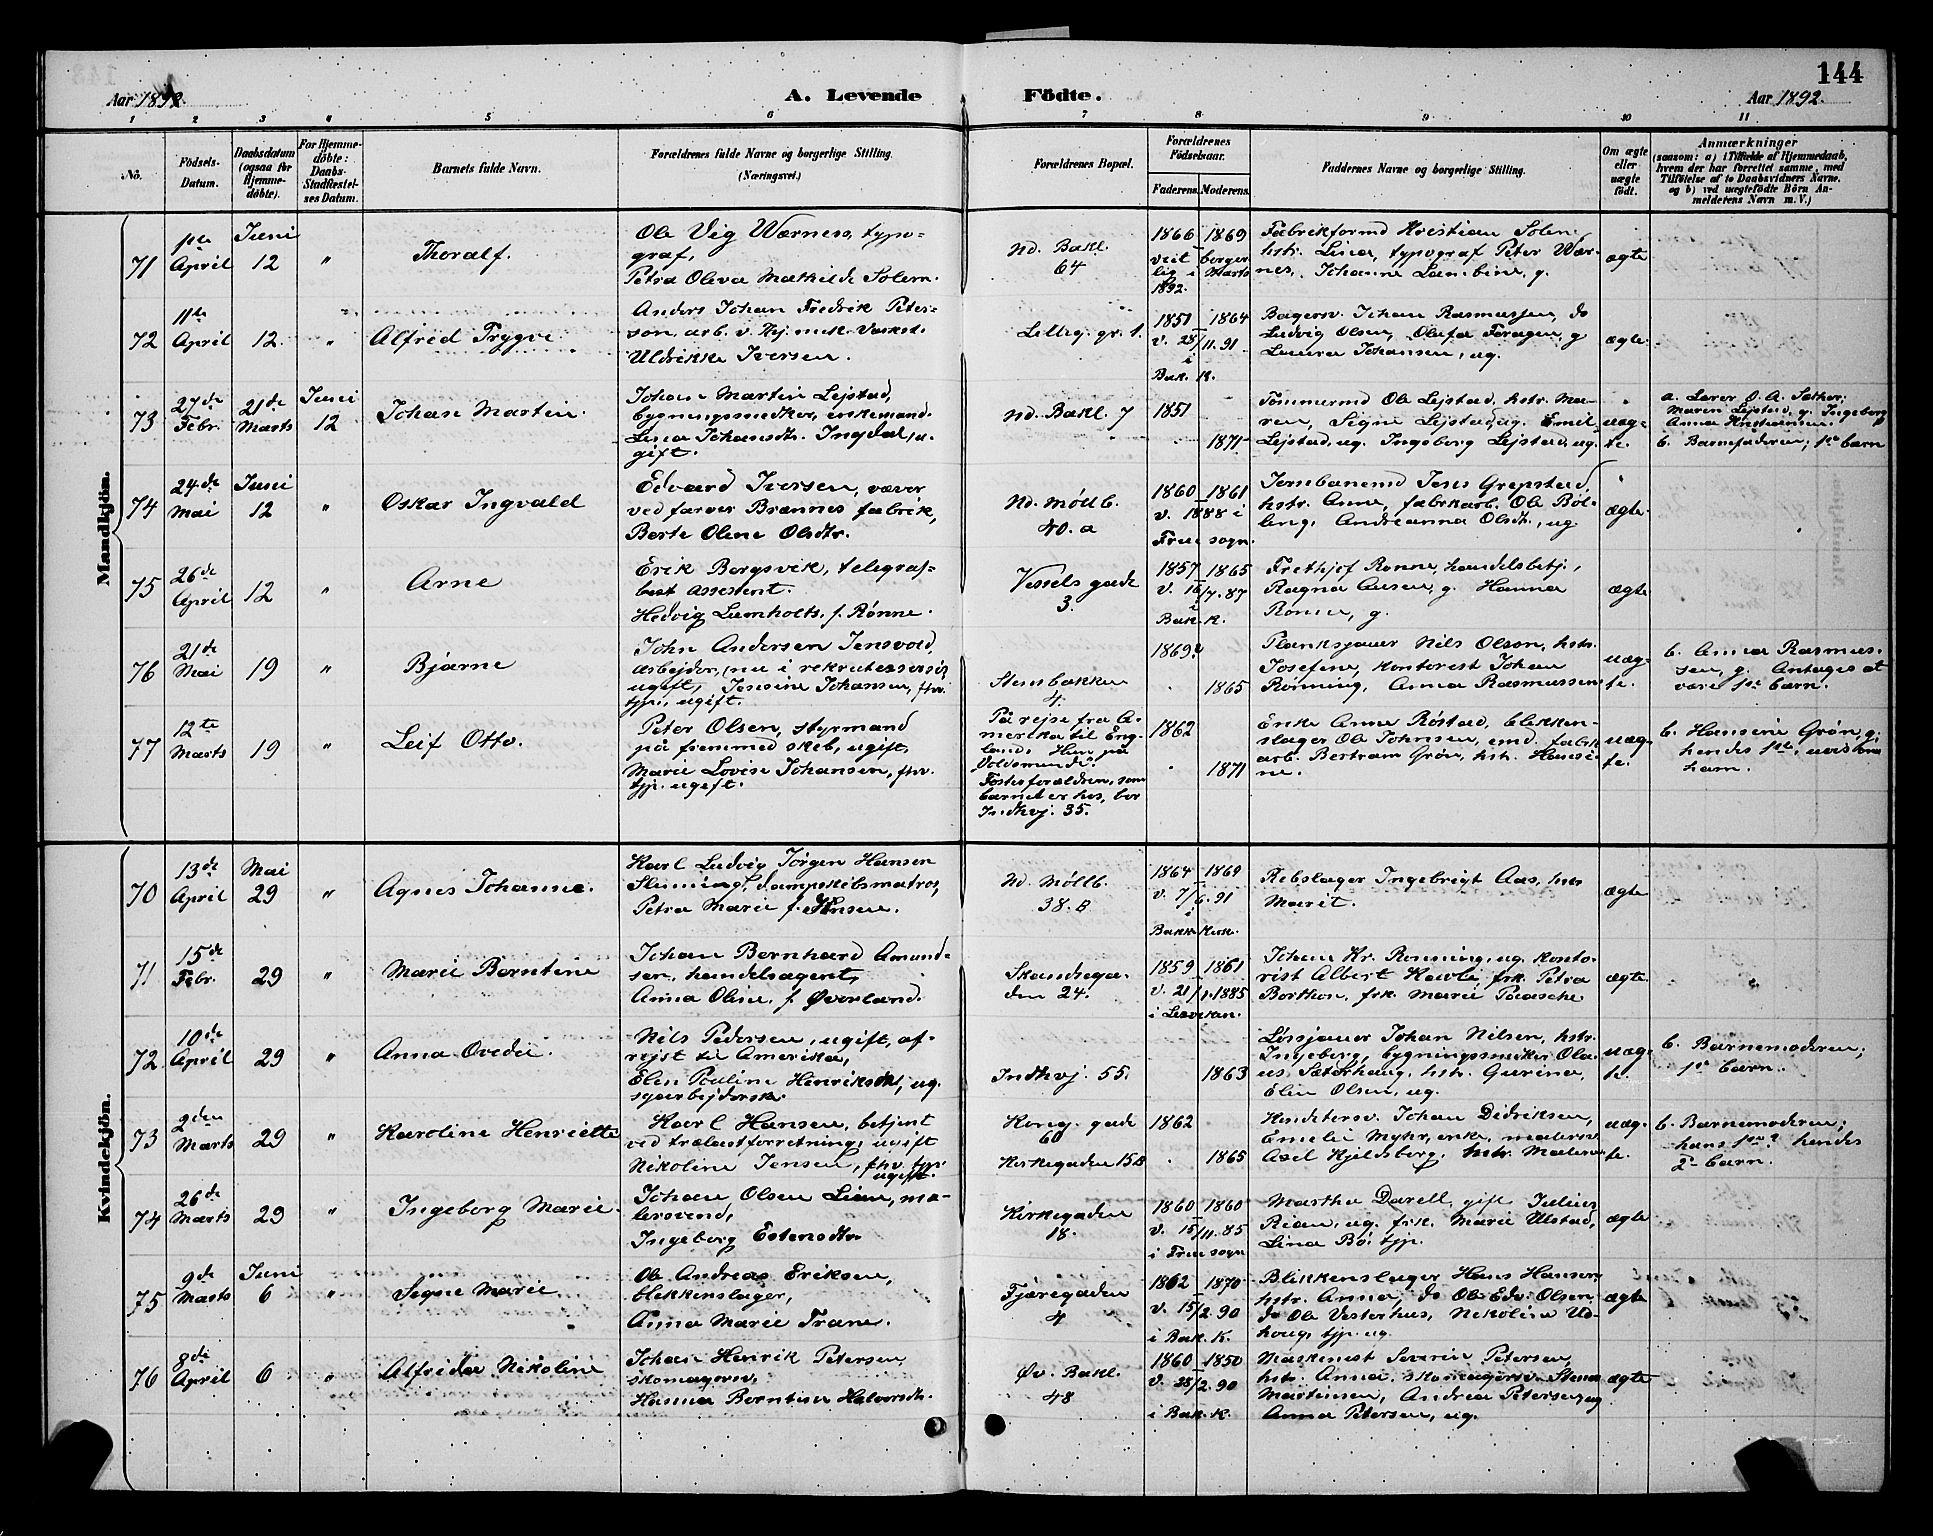 144
Aar 1892.
A. Levende Födte.
Aar 1892.
1 2 3 4 5 6 7 8 9 10 11
No.
Födsels-Datum.
Daabsdatum (ogsaa for Hjemme-döbte).
For Hjemme-döbte: Daabs-Stadfæstel-ses Datum.
Barnets fulde Navn.
Forældrenes fulde Navne og borgerlige Stilling.
(Næringsvei.)
Forældrenes Bopæl.
Forældrenes Födselsaar.
Faderens. Moderens.
Faddernes Navne og borgerlige Stilling.
Om ægte eller uægte født.
Anmærkninger
(saasom: a) i Tilfælde af Hjemmedaab,
hvem der har forrettet samme, med
Tilföielse af to Daabsvidners Navne.
og b) ved uægtefödte Börn An-
melderens Navn m. V.)
Mandkjön.
71 1ste April Juni 12 " Thoralf.
Ole Vig Wærness, typo-
graf,
Petra Oliva Mathilde Solem.
Nd. Bakl.
64
1866 - 1869
veit borger
lig i Marts
1892.
Fabrikformd Kristian Solem
hstr. Lina, typograf Peter Wær-
nes, Johanne Lambine, g.
ægte
72 11te April 12. " Alfred Trygve
Anders Johan Fredrik Peter-
son, arb. v. Thj. mek. Værkst.
Uldrikke Iversen.
Lilleg. gr. 1.
1851 - 1864
v. 28/11. 91
i
Bak. K.
Bagersv. Johan Rasmussen, do
Ludvig Olsen, Olufa Foragen, g
Laura Johansen, ug.
ægte
73 27de Febr. 21de Marts Juni 12 Johan Martin.
Johan Martin Lejstad,
bygningssnedker, enkemand.
Lina Johansdtr. Ingdal, u-
gift.
Nd. Bakl. 7
1851
1871
Tömmermd Ole Lejstad, hstr. Ma-
ren, Signe Lejstad, ug. Emil
Lejstad, ug. Ingeborg Lejstad, ug.
uæg-
te.
a. Lærer O. A. Sæther;
Maren Lejstad, g. Ingeborg
Anna Kristiansen.
b. Barnefaderen; 1ste barn
74 24de Mai Juni 12 " Oskar Ingvald
Edvard Iversen, væver
ved farver Brænnes fabrik,
Berte Oline Olsdtr.
Nd. Møllb.
40. a
1860 - 1861
v. 1888 i
Frue sogn.
Jernbanemd Jens Grepstad,
hstr. Anne, fabrkarb. Ole Böl-
ling, Andreanna Olsdtr., ug.
ægte
75 26de April 12 " Arne
Erik Borgsvik, telegraf-
best assistent.
Hedvig Lumholts, f. Rönne.
Vessels gade
3.
1857 - 1865
v. 16/7. 87
i
Bak. K.
Frethjof Rønne, handelsbetj.,
Ragna Ausen, g. Hanna
Rønne, g.
ægte
76 21de Mai 19 " Bjarne
John Andersen Jensvold,
arbejder, (nu i rekrutexersis),
ugift, Josefine Johansen, fhv.
tjp., ugift.
Stensbakken
4.
1869.
1865
Planksjauer Nils Olson, hstr.
Josefine, kontorist Johan
Rönning, Anna Rasmussen
uæg-
te.
b. Anna Rasmus-
sen, g. Antages at
være 1ste barn.
77 12te Marts 19 " Leif Otto.
Peter Olsen, styrmand
på fremmed skib, ugift,
Marie Lovise Johansen, fhv.
tjp. ugift.
På rejse fra A-
merika til Eng-
land. Hun på
Voldsminde.
Fosterforældren, som
barnet er hos, bor
Indhvj. 35.
1862
1871
Enke Anne Röstad, blikken-
slager Ole Johnsen, emd. fabrik
arb. Bertram Grön, hstr. Hansi-
ne.
uæg-
te.
b. Hansine Grön, g;
hendes 1ste
barn.
Kvindekjön.
70 13de April Mai 29 " Agnes Johanne.
Karl Ludvig Jörgen Hansen
Sluming, dampskibsmatros,
Petra Marie f. Hansen.
Nd. Möllb.
38. B
1864 - 1869
v. 7/6. 91
i
Bakk. Kirk.
Rebslager Ingebrigt Aas, hstr
Marit.
ægte
71 15de Febr. 29 " Marie Berntine
Johan Bernhard Amund-
sen, handelsagent,
Anna Oline, f. Øverland.
Skandsega-
den 24.
1859 - 1861
v. 21/1. 1885
i Lexviken.
Johan Kr. Rønning, ug. konto-
rist Albert Havli, frk. Petra
Borthen, frk. Marie Paasche
ægte.
72 10de April 29 " Anna Ovedie.
Nils Pedersen, ugift, af-
rejst til Amerika,
Elen Pauline Henriksdtr, ug.
syarbejderske.
Indhvj. 55.
1863
Løssjauer Johan Nilsen, hstr.
Ingeborg, bygningssnedker Ola-
us Sæterhaug, hstr. Gurina,
Elin Olsen, ug.
uæg-
te.
b. Barnemoderen;
1ste barn.
73 9den Marts 29 " Karoline Henriette
Karl Hansen, betjent
ved trælastforretning, ugift
Nikoline Jensen, fhv. tjp.
ugift.
Kong. gade
60
Kirkegaden 15B
1862
1865
Konditersv. Johan Didriksen,
Emelie Myhr, enke, malersv
Axel Kjeldsberg, hstr. Matea
uæg-
te.
b. Barnemoderen;
hans 1ste? hendes
2. barn.
74 26de Marts 29 " Ingeborg Marie.
Johan Olsen Lian, ma-
lersvend,
Ingeborg Estensdtr.
Kirkegaden
18.
1860 - 1860
v. 15/11. 85
i Frue sogn
Martha Darell, gift, Julius
Rian, ug. frk. Marie Ulstad,
Lina Bö, tjp.
ægte
75 9de Marts Juni 6 " Signe Marie
Ole Andreas Eriksen,
blikkenslager,
Anna Marie Trane.
Fjæregaden
4
1862 - 1870
v. 15/2. 90
i Bak. K.
Blikkenslager Hans Hansen,
hstr. Anna, do Ole Edv. Olsen
do Ole Vesterhus, Nikoline Ud-
houg, tjp. ug.
ægte
76 8de April 6 " Alfrida Nikoline
Johan Henrik Petersen,
skomagersv,
Hanna Berntine Halvorsdtr.
Øv. Bakl.
48
1860 - 1850
v. 28/2. 90
i Bak. K.
Maskinist Severin Petersen,
hstr. Anna, skomagersv. Stener
Martinsen, Andrea Petersen, ug
Anna Petersen, ug.
ægte